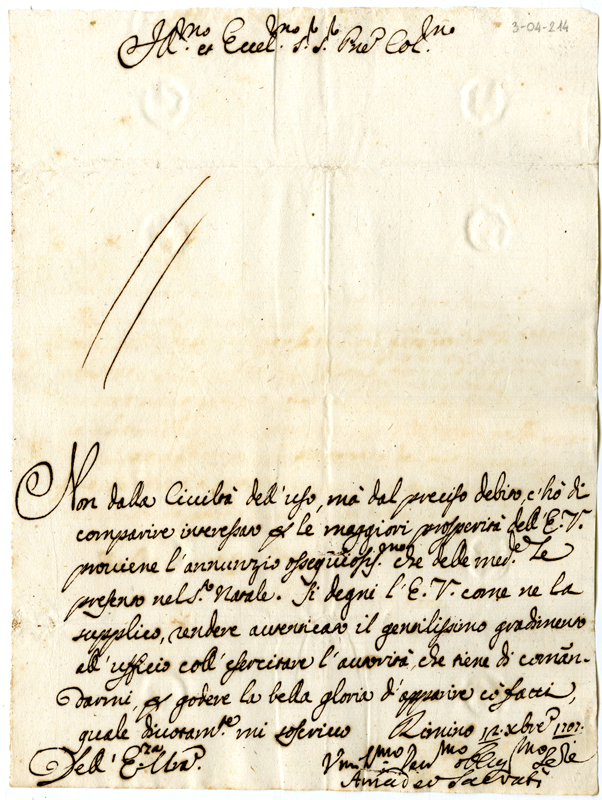 3-04-214
Ill.mo et Eccel.mo S.r S.r Pne Col.mo
Non dalla Civiltà dell'uso, mà dal preciso debito, c'hò di
comparire interessato per le maggiori prosperità dell'E. V.
proviene l'annunzio ossequiosis.mo che delle med.e Le
presento nel S.to Natale. Si degni l'E. V. come ne la
supplico, rendere autenticato il gentilissimo gradimento
all'ufficio coll'esercitare l'autorità, che tiene di coman-
darmi, per godere la bella gloria d'apparire cò fatti,
quale divotam.te mi soscrivo Rimino 12. Xbre 1707.
Dell'E.za V.ra
Um.mo Dev.mo Oblig.mo Ser.e
Amadeo Salvati